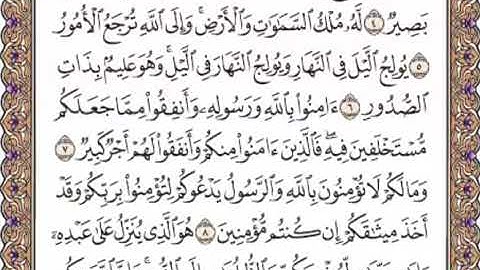 بَصِيرٌ ٤ لَّهُۥ مُلْكُ ٱلسَّمَٰوَٰتِ وَٱلْأَرْضِ ۚ وَإِلَى ٱللَّهِ تُرْجَعُ ٱلْأُمُورُ
٥ يُولِجُ ٱلَّيْلَ فِى ٱلنَّهَارِ وَيُولِجُ ٱلنَّهَارَ فِى ٱلَّيْلِ ۚ وَهُوَ عَلِيمٌۢ بِذَاتِ
ٱلصُّدُورِ ٦ ءَامِنُوا۟ بِٱللَّهِ وَرَسُولِهِۦ وَأَنفِقُوا۟ مِمَّا جَعَلَكُم
مُّسْتَخْلَفِينَ فِيهِ ۖ فَٱلَّذِينَ ءَامَنُوا۟ مِنكُمْ وَأَنفَقُوا۟ لَهُمْ أَجْرٌ كَبِيرٌ ٧
وَمَا لَكُمْ لَا تُؤْمِنُونَ بِٱللَّهِ ۙ وَٱلرَّسُولُ يَدْعُوكُمْ لِتُؤْمِنُوا۟ بِرَبِّكُمْ وَقَدْ
أَخَذَ مِيثَٰقَكُمْ إِن كُنتُم مُّؤْمِنِينَ ٨ هُوَ ٱلَّذِى يُنَزِّلُ عَلَىٰ عَبْدِهِۦٓ